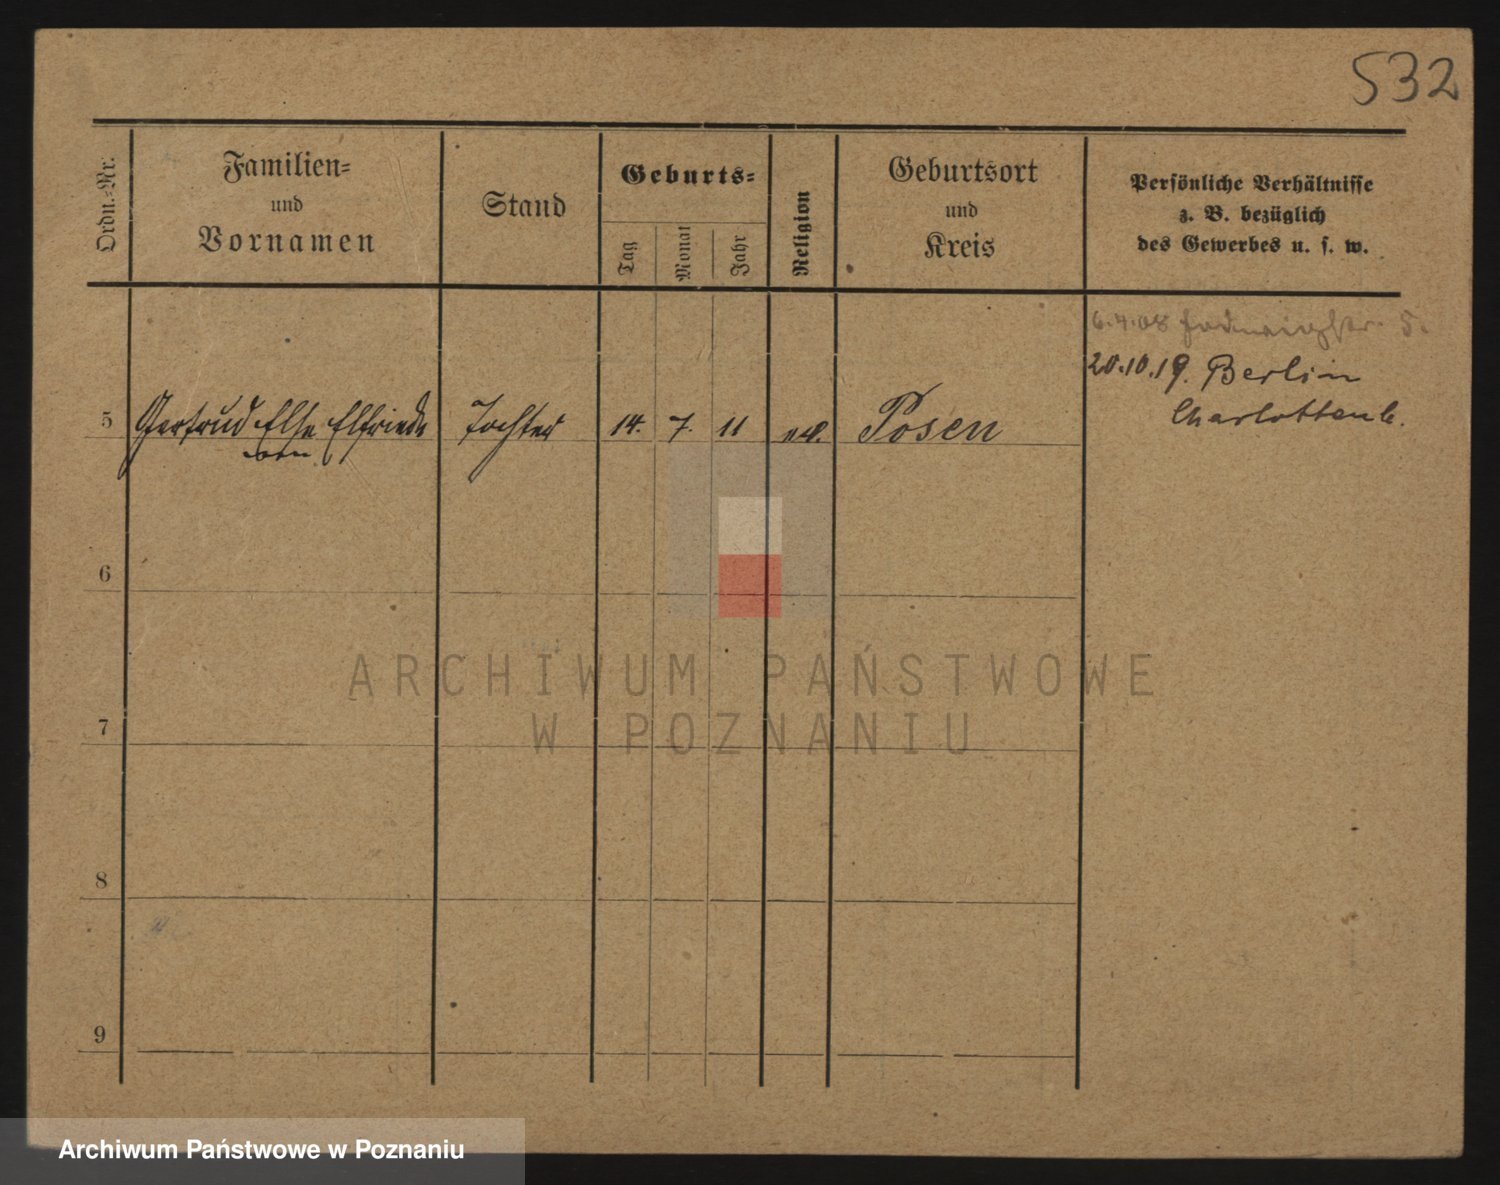 532
Ordn.-Nr.
Familien-
und
Vornamen
Stand
Geburts-
Tag
Monat
Jahr
Religion
Geburtsort
und
Kreis
Persönliche Verhältnisse
z. B. bezüglich
des Gewerbes u. s. w.
6.4.08 5.
20.10.19. Berlin
Charlottenb.
5 Gertrud Else Elfriede Tochter 14. 7. 11 Posen
6
7
8
9
ARCHIWUM PAŃSTWOWE
W POZNANIU
Archiwum Państwowe w Poznaniu